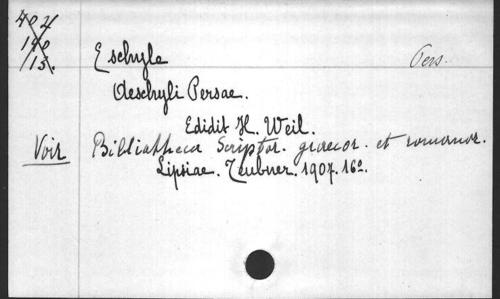 402
190
/15.
Eschyle
Pers.
Aeschyli Persae.
Edidit H. Weil.
Voir Bibliotheca Scriptor. graecor. et romanor.
Lipsiae. Teubner, 1907. 16º.